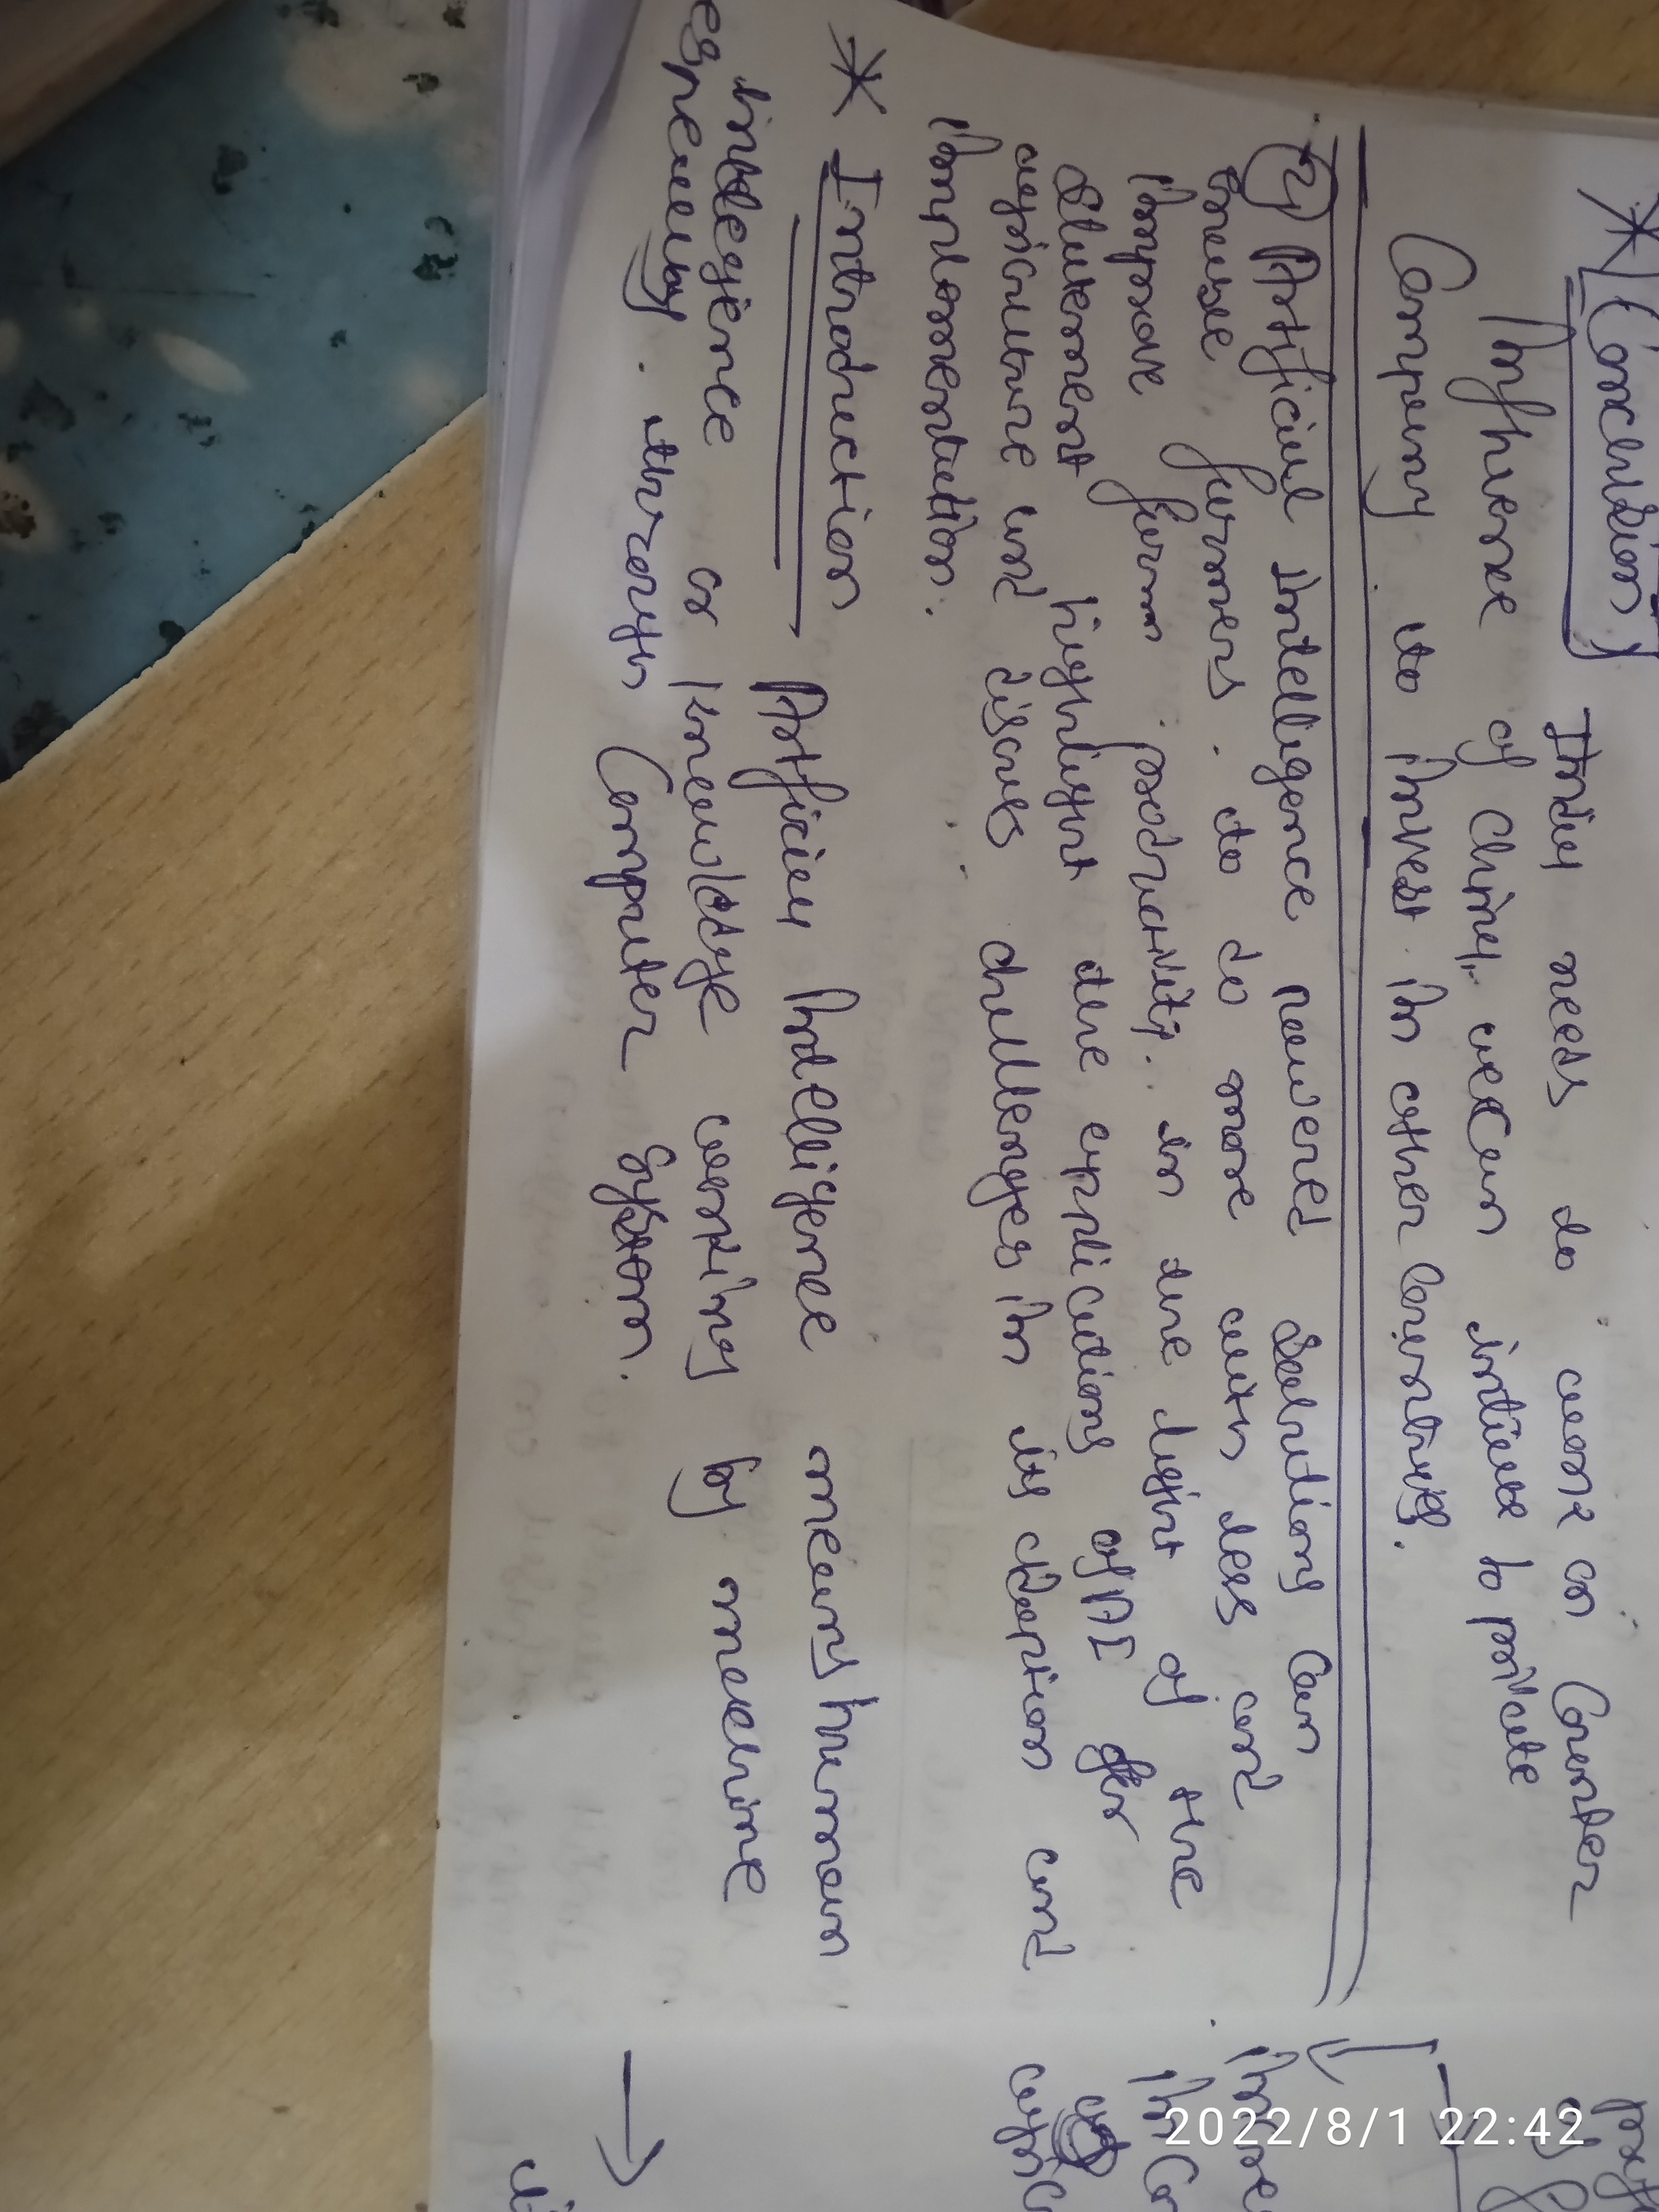 * Conclusion India needs to work on Counter
Influence of China, we can intiue to private
Company to invest in other countries.
2) Artificial Intelligence powered Solutions Can
enable farmers to do more with less and
improve farm productivity. in the light of the
Statement highlight the applications of AI for
agriculture and discuss challenges in its adoption and
implementation.
* Introduction Artificial Intelligence means human
intelegience or knowledge working by machine
especially through Computer System.
2022/8/1 22:42